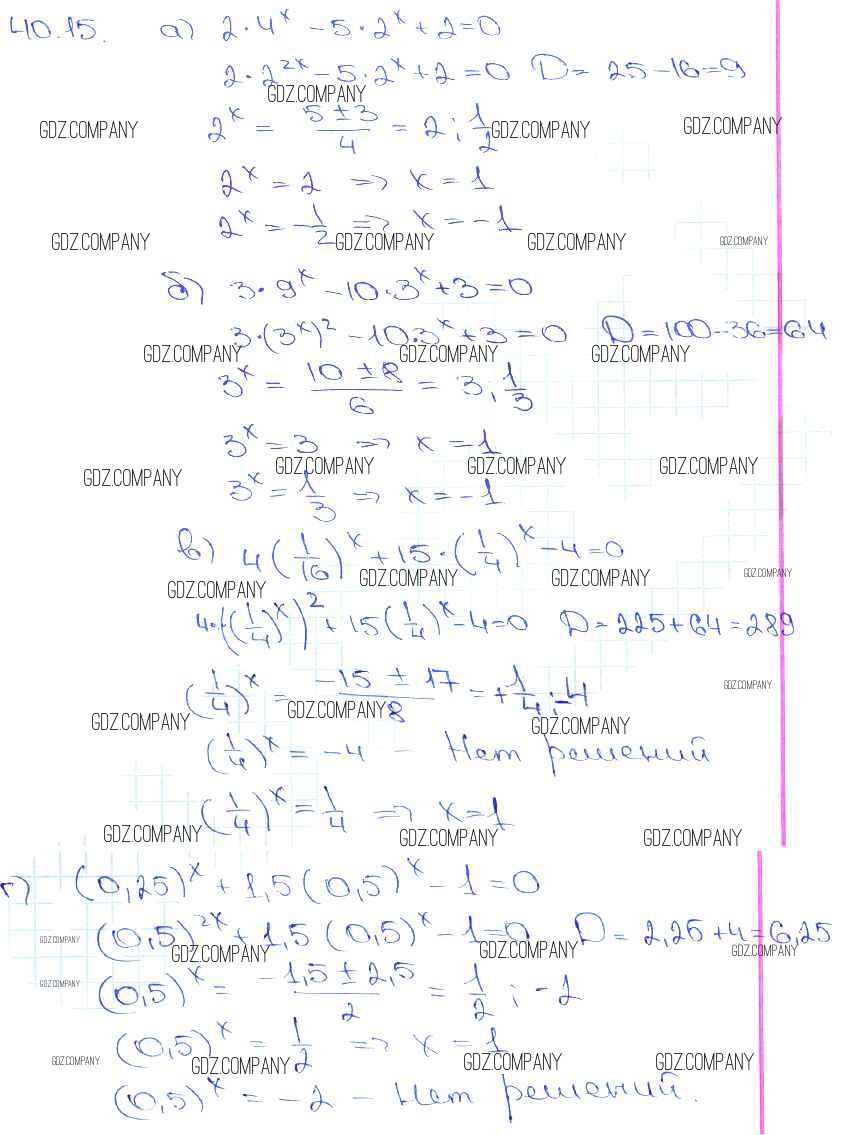 40.15. а) 2·4^x − 5·2^x + 2 = 0
2·2^{2x} − 5·2^x + 2 = 0 D = 25 − 16 = 9
GDZ.COMPANY
2^x = \frac{5 ± 3}{4} = 2; \frac{1}{2}
GDZ.COMPANY GDZ.COMPANY GDZ.COMPANY
2^x = 2 => x = 1
2^x = -\frac{1}{2} => x = −1
GDZ.COMPANY GDZ.COMPANY GDZ.COMPANY GDZ.COMPANY
б) 3·9^x − 10·3^x + 3 = 0
3·(3^x)^2 − 10·3^x + 3 = 0 D = 100 − 36 = 64
GDZ.COMPANY GDZ.COMPANY GDZ.COMPANY
3^x = \frac{10 ± 8}{6} = 3, \frac{1}{3}
3^x = 3 => x = 1
GDZ.COMPANY GDZ.COMPANY GDZ.COMPANY GDZ.COMPANY
3^x = \frac{1}{3} => x = −1
в) 4(\frac{1}{16})^x + 15·(\frac{1}{4})^x − 4 = 0
GDZ.COMPANY GDZ.COMPANY GDZ.COMPANY GDZ.COMPANY
4·((\frac{1}{4})^x)^2 + 15(\frac{1}{4})^x − 4 = 0 D = 225 + 64 = 289
(\frac{1}{4})^x = \frac{−15 ± 17}{8} = +\frac{1}{4}; −4
GDZ.COMPANY GDZ.COMPANY GDZ.COMPANY GDZ.COMPANY
(\frac{1}{4})^x = −4 − Нет решений
(\frac{1}{4})^x = \frac{1}{4} => x = 1
GDZ.COMPANY GDZ.COMPANY GDZ.COMPANY
г) (0,25)^x + 1,5(0,5)^x − 1 = 0
(0,5)^{2x} + 1,5(0,5)^x − 1 = 0 D = 2,25 + 4 = 6,25
GDZ.COMPANY GDZ.COMPANY GDZ.COMPANY GDZ.COMPANY
(0,5)^x = \frac{−1,5 ± 2,5}{2} = \frac{1}{2}; −2
GDZ.COMPANY
(0,5)^x = \frac{1}{2} => x = 1
GDZ.COMPANY GDZ.COMPANY GDZ.COMPANY GDZ.COMPANY
(0,5)^x = −2 − Нет решений.